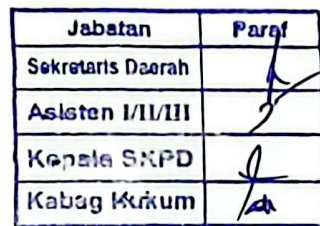 Jabatan Paraf
Sekretaris Daerah
Asisten I/II/III
Kepala SKPD
Kabag Hukum